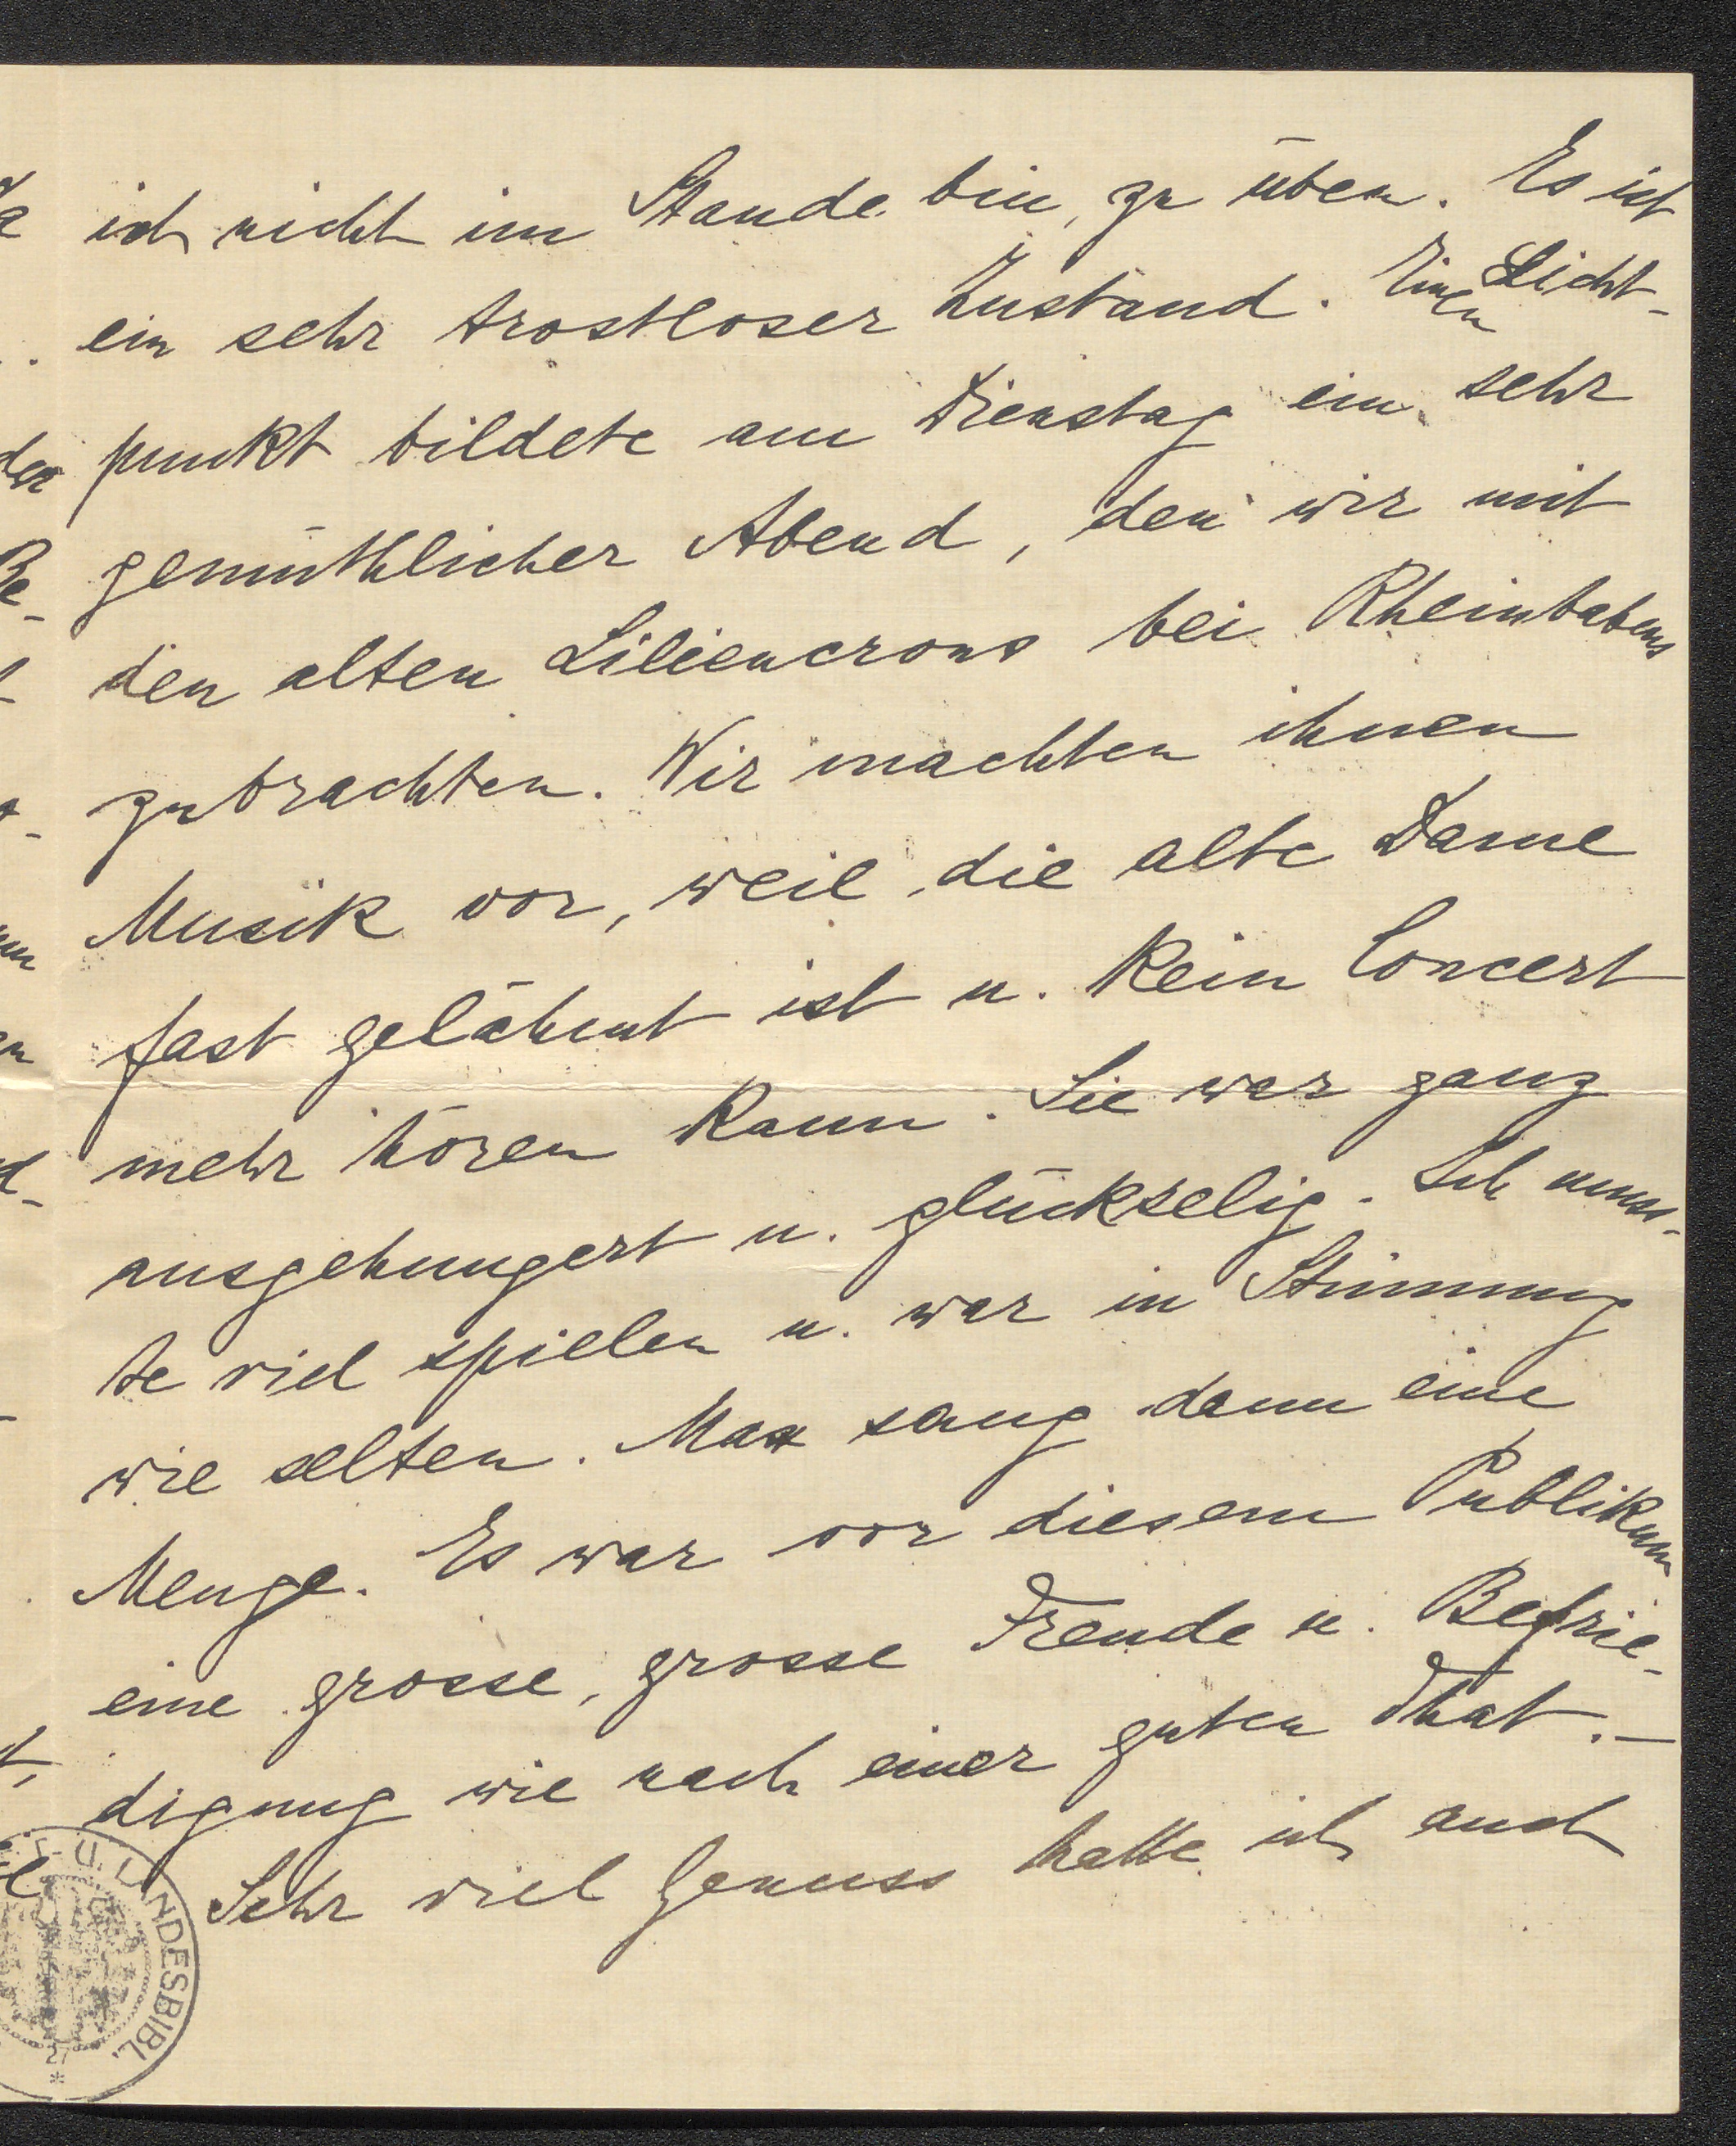 ich nicht im Stande bin, zu üben. Es ist
ein sehr trostloser Zustand. Einen Licht-
punkt bildete am Dienstag ein sehr
gemüthlicher Abend, den wir mit
den alten Liliencrons bei Rheinbabens
zubrachten. Wir machten ihnen
Musik vor, weil die alte Dame
fast gelähmt ist u. kein Concert
mehr hören kann. Sie war ganz
ausgehungert u. glückselig. Ich muss-
te viel spielen u. war in Stimmung
wie selten. Max sang dann eine
Menge. Es war vor diesem Publikum
eine grosse, grosse Freude u. Befrie-
digung wie nach einer guten That.—
Sehr viel Genuss hatte ich auch
U. LANDESBIBL.